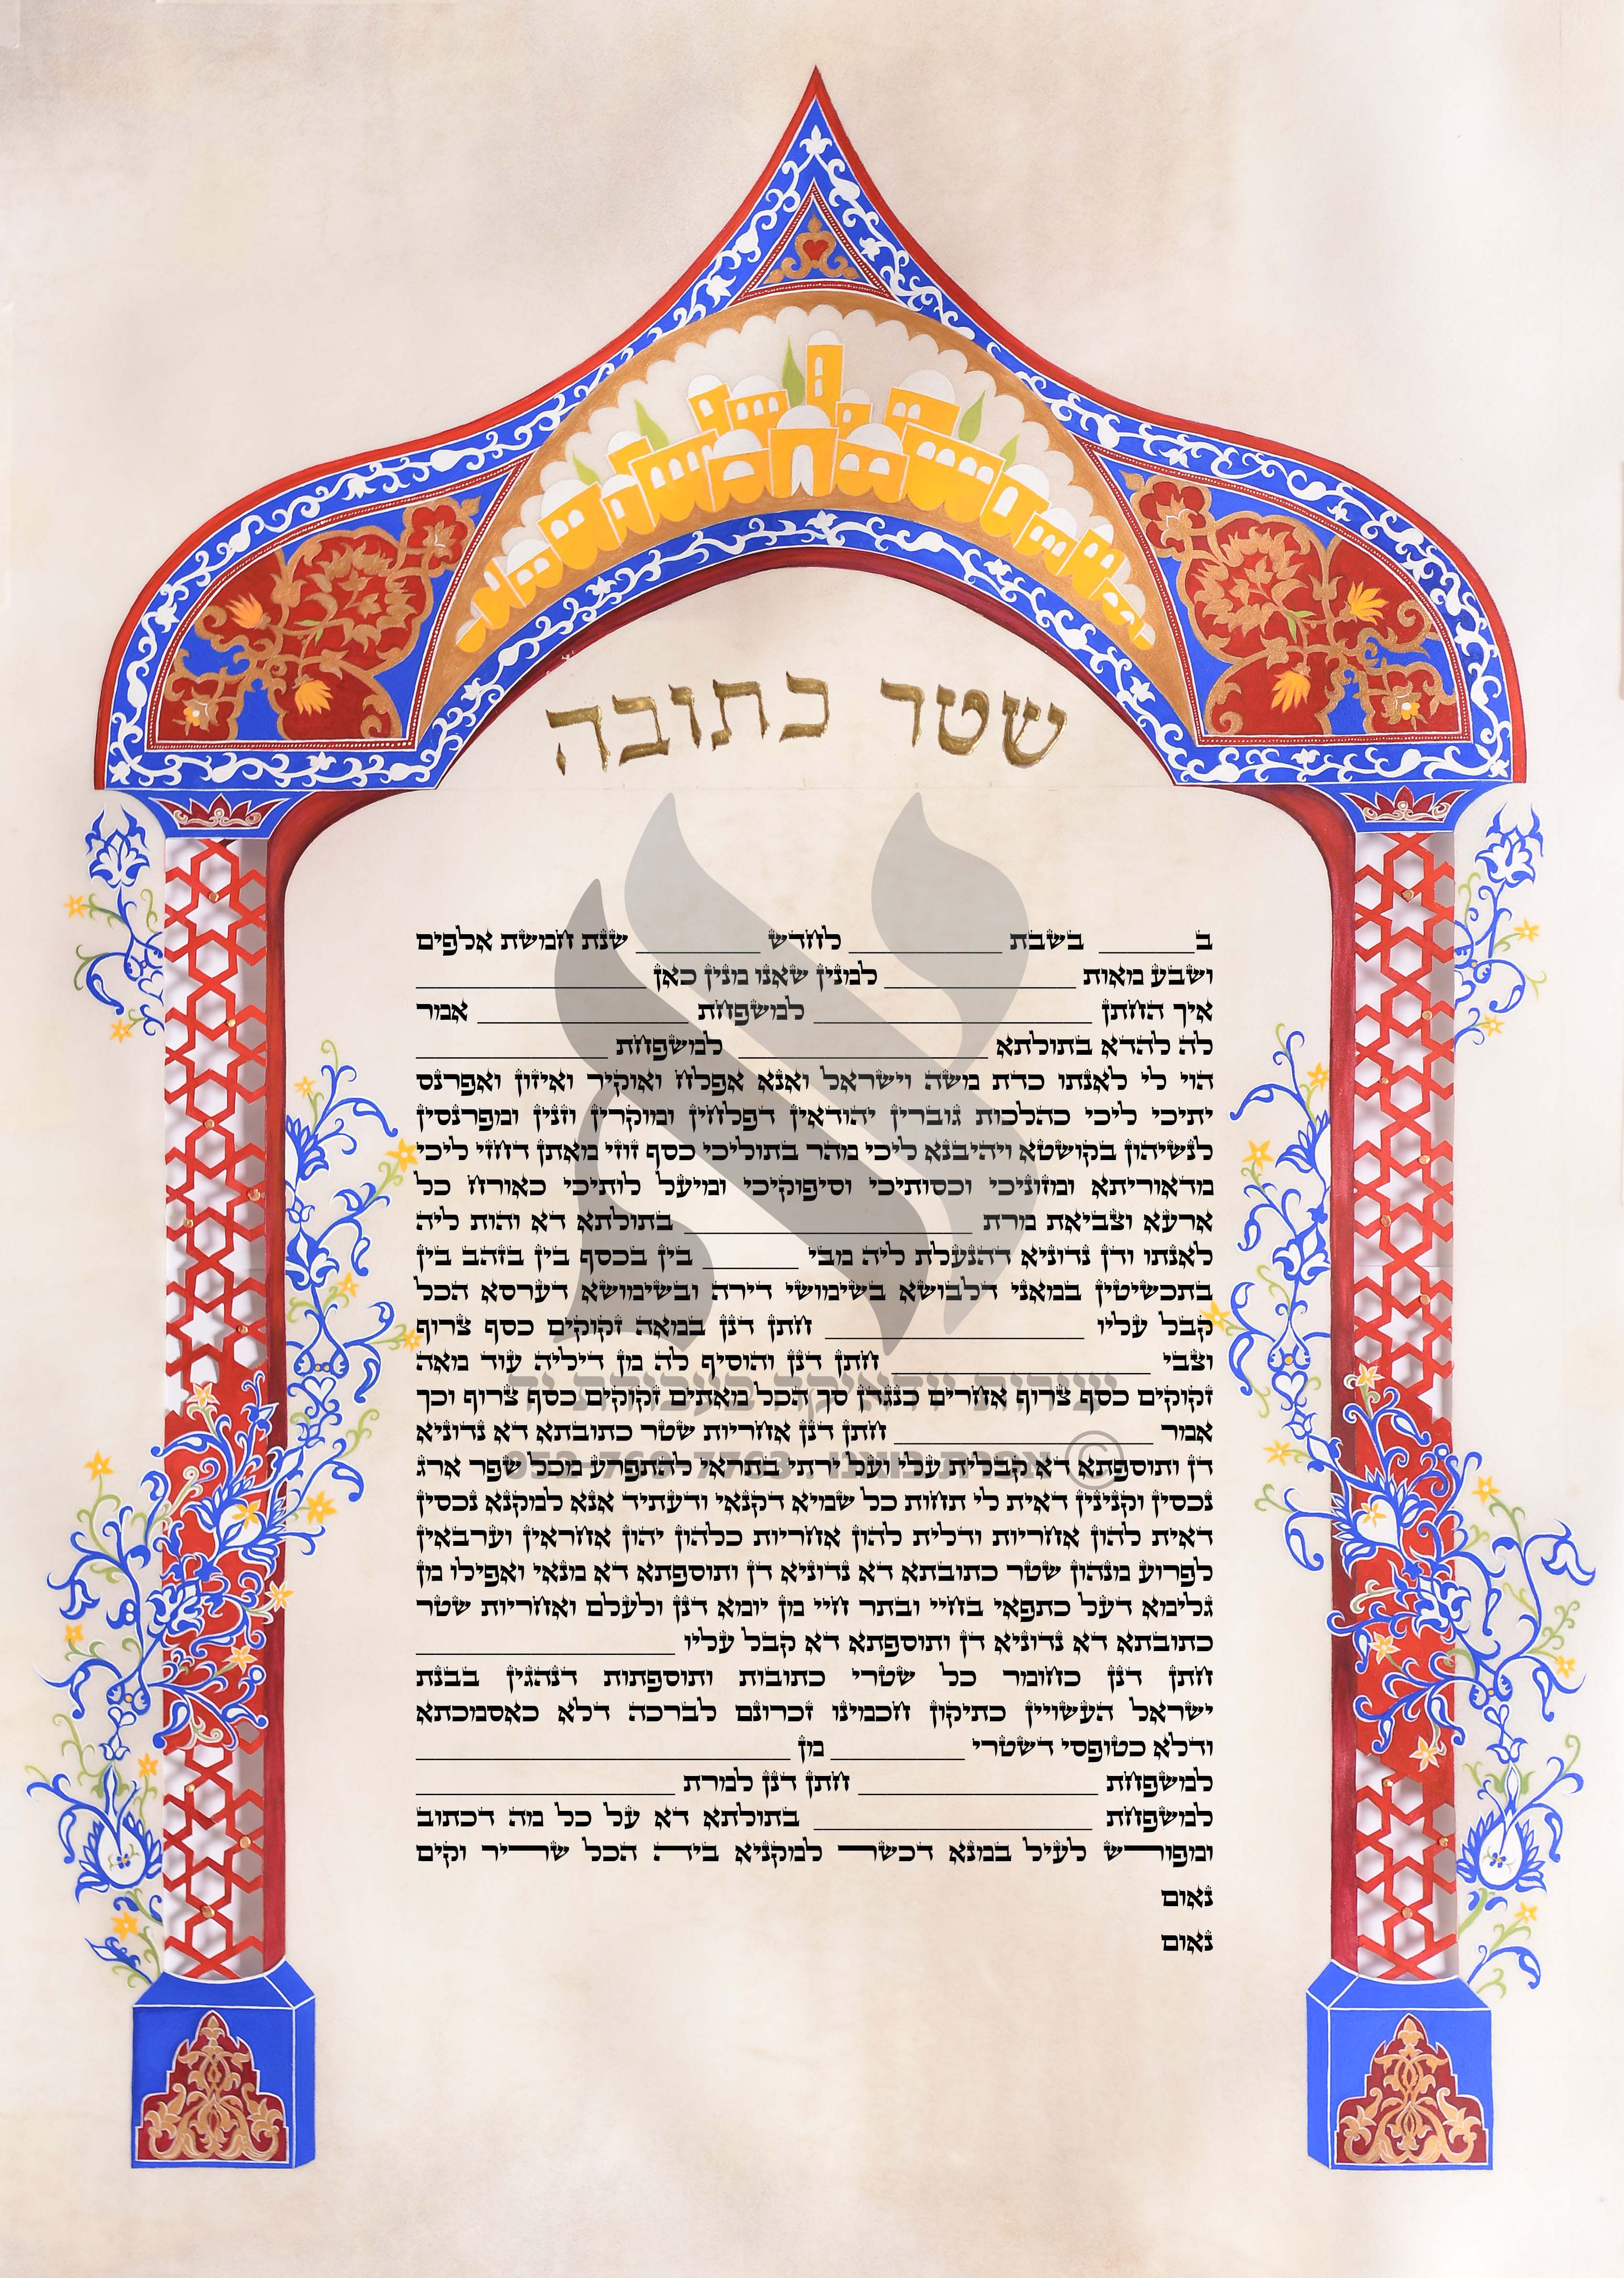 שטר כתובה
ב________ בשבת ____________ לחדש __________ שנת חמשת אלפים
ושבע מאות ________________ למנין שאנו מנין כאן ____________________
איך החתן ________________________ למשפחת ________________ אמור
לה להדא בתולתא ______________________ למשפחת ________________
הוי לי לאנתו כדת משה וישראל ואנא אפלח ואוקיר ואיזון ואפרנס
יתיכי ליכי כהלכות גוברין יהודאין דפלחין ומוקרין וזנין ומפרנסין
לנשיהון בקושטא ויהיבנא ליכי מהר בתוליכי כסף זוזי מאתן דחזי ליכי
מדאוריתא ומזוניכי וכסותיכי וסיפוקיכי ומיעל לותיכי כאורח כל
ארעא וצביאת מרת ________________________ בתולתא דא והות ליה
לאנתו ודן נדוניא דהנעלת ליה מבי ________ בין בכסף בין בזהב בין
בתכשיטין במאני דלבושא בשימושי דירה ובשימושא דערסא הכל
קבל עליו ______________________ חתן דנן במאה זקוקים כסף צרוף
וצבי ______________________ חתן דנן והוסיף לה מן דיליה עוד מאה
זקוקים כסף צרוף אחרים כנגדן סך הכל מאתים זקוקים כסף צרוף וכך
אמר ______________________ חתן דנן אחריות שטר כתובתא דא נדוניא
דן ותוספתא דא קבלית עלי ועל ירתי בתראי להתפרע מכל שפר ארג
נכסין וקנינין דאית לי תחות כל שמיא דקנאי ודעתיד אנא למקנא נכסין
דאית להון אחריות ודלית להון אחריות כלהון יהון אחראין וערבאין
לפרוע מנהון שטר כתובתא דא נדוניא דן ותוספתא דא מנאי ואפילו מן
גלימא דעל כתפאי בחיי ובתר חיי מן יומא דנן ולעלם ואחריות שטר
כתובתא דא נדוניא דן ותוספתא דא קבל עליו ______________________
חתן דנן כחומר כל שטרי כתובות ותוספתות דנהגין בבנת
ישראל העשויין כתיקון חכמינו זכרונם לברכה דלא כאסמכתא
ודלא כטופסי דשטרי ____________ מן ________________________________
למשפחת ____________________ חתן דנן למרת ______________________
למשפחת ________________________ בתולתא דא על כל מה דכתוב
ומפורש לעיל במנא דכשר למקניא ביה הכל שריר וקים
נאום
נאום
© אפרת 052-760-7763